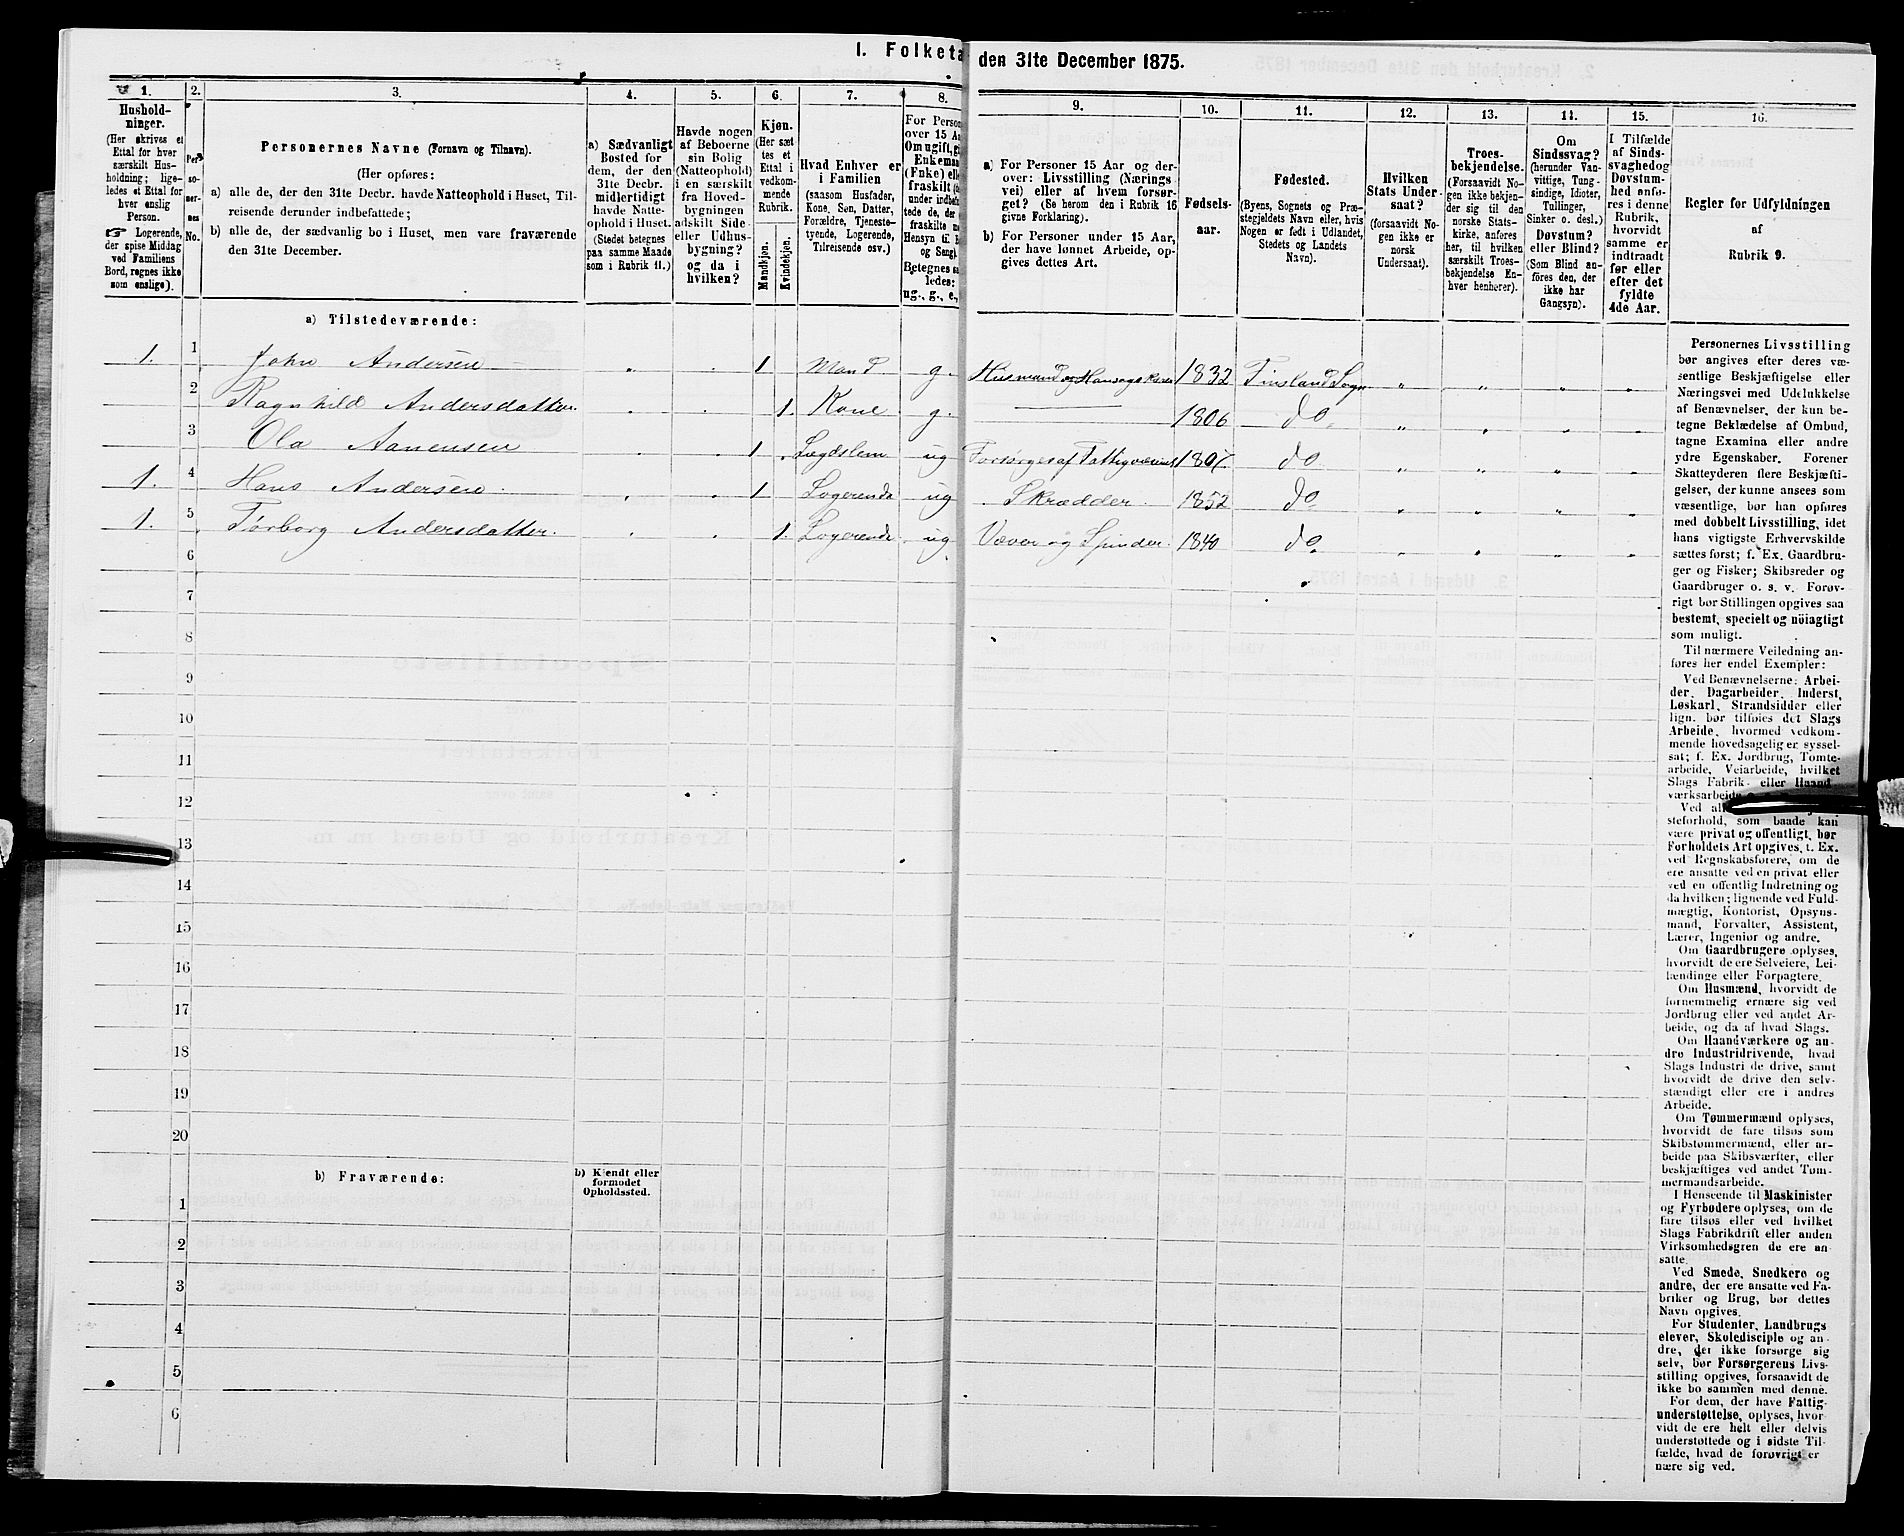 I. Folketa
den 31te December 1875.
1.
Hushold-
ninger.
(Her skrives et
Ettal for hver
særskilt Hus-
holdning; lige-
ledes et Ettal for
hver enslig
Person.
☞ Logerende,
der spise Middag
ved Familiens
Bord, regnes ikke
som enslige).
2.
Per-
so-
ner-
nes
No.
3.
Personernes Navne (Fornavn og Tilnavn).
(Her opføres:
a) alle de, der den 31te Decbr. havde Natteophold i Huset, Til-
reisende derunder indbefattede;
b) alle de, der sædvanlig bo i Huset, men vare fraværende
den 31te December.
4.
a) Sædvanligt
Bosted for
dem, der den
31te Decbr.
midlertidigt
havde Natte-
ophold i Huset.
(Stedet betegnes
paa samme Maade
som i Rubrik 11.)
5.
Havde nogen
af Beboerne
sin Bolig
(Natteophold)
i en særskilt
fra Hoved-
bygningen
adskilt Side-
eller Udhus-
bygning?
og da i
hvilken?
6.
Kjøn.
(Her sæt-
tes et
Ettal i
vedkom-
mende
Rubrik.
Mandkjøn.
Kvindekjøn.
7.
Hvad Enhver er
i Familien
(saasom Husfader,
Kone, Søn, Datter,
Forældre, Tjeneste-
tyende, Logerende,
Tilreisende osv.)
8.
For Person
over 15 Aa
Om ugift, gi
Enkemæ
(Enke) ell
fraskilt (
under indbef
tede de, der
fraskilte
Hensyn til B
og Seng)
Betegnes sa
ledes:
ug., g., e.,
9.
a) For Personer 15 Aar og der-
over: Livsstilling (Nærings
vei) eller af hvem forsør-
get? (Se herom den i Rubrik 16
givne Forklaring).
b) For Personer under 15 Aar,
der have lønnet Arbeide, op-
gives dettes Art.
10.
Fødsels-
aar.
11.
Fødested.
(Byens, Sognets og Præ-
stegjeldets Navn eller, hvis
Nogen er født i Udlandet,
Stedets og Landets
Navn).
12.
Hvilken
Stats Under-
saat?
(forsaavidt No-
gen ikke er
norsk
Undersaat).
13.
Troes-
bekjendelse.
(Forsaavidt No-
gen ikke bekjen-
der sig til den
norske Stats-
kirke, anføres
her, til hvilken
særskilt Troes-
bekjendelse En-
hver henhører).
14.
Om
Sindssvag?
(herunder Van-
vittige, Tung-
sindige, Idioter,
Tullinger,
Sinker o. desl.)
Døvstum?
eller Blind?
(Som Blind an-
føres den, der
ikke har
Gangsyn).
15.
I Tilfælde
af Sinds-
svaghed og
Døvstum-
hed anfø-
res i denne
Rubrik,
hvorvidt
samme er
indtraadt
før eller
efter det
fyldte
4de Aar.
16.
Regler for Udfyldningen
af
Rubrik 9.
a) Tilstedeværende:
1. 1 John Andersen " . 1 Mand g. Husmand og 1832 Finsland Sogn " " " "
2 Ragnhild Andersdatter . . 1. Kone g. — 1806 do. " " " "
3 Ola Aanensen . . 1 Lægdslem ug Forsørges af Fattigvæsenet 1807. do " " " "
1. 4 Hans Andersen . . 1 Logerende ug Skrædder. 1852 do " " " "
1. 5 Tørborg Andersdatter. . . 1. Logerende ug Væver og Spinder. 1840 do. " " " "
6
7
8
9
10
11
12
13
14
15
16
17
18
19
20
b) Fraværende:
b) Kjendt eller
formodet
Opholdssted.
1
2
3
4
5
6
Personernes Livsstilling
bør angives efter deres væ-
sentlige Beskjæftigelse eller
Næringsvei med Udelukkelse
af Benævnelser, der kun be-
tegne Beklædelse af Ombud,
tagne Examina eller andre
ydre Egenskaber. Forener
Skatteyderen flere Beskjæfti-
gelser, der kunne ansees som
væsentlige, bør han opføres
med dobbelt Livsstilling, idet
hans vigtigste Erhvervskilde
sættes først; f. Ex. Gaardbru-
ger og Fisker; Skibsreder og
Gaardbruger o. s. v. Forøv-
rigt bør Stillingen opgives saa
bestemt, specielt og nøiagtigt
som muligt.
Til nærmere Veiledning an-
føres her endel Exempler:
Ved Benævnelserne: Arbei-
der, Dagarbeider, Inderst,
Løskarl, Strandsidder eller
lign. bør tilføies det Slags
Arbeide, hvormed vedkom-
mende hovedsagelig er syssel-
sat; f. Ex. Jordbrug, Tomte-
arbeide, Veiarbeide, hvilket
Slags Fabrik- eller Haand-
værksarbeide
Ved al
steforhold, som baade kan
være privat og offentligt, bør
Forholdets Art opgives, t. Ex.
ved Regnskabsførere, om de
ere ansatte ved en privat eller
ved en offentlig Indretning og
da hvilken; lignende ved Fuld-
mægtig, Kontorist, Opsyns-
mand, Forvalter, Assistent,
Lærer, Ingeniør og andre.
Om Gaardbrugere oplyses,
hvorvidt de ere Selveiere, Lei-
lændinge eller Forpagtere.
Om Husmænd, hvorvidt de
fornemmelig ernære sig ved
Jordbrug eller ved andet Ar-
beide, og da af hvad Slags.
Om Haandværkere og an-
dre Industridrivende, hvad
Slags Industri de drive, samt
hvorvidt de drive den selv-
stændigt eller ere i andres
Arbeide.
Om Tømmermænd oplyses,
hvorvidt de fare tilsøs som
Skibstømmermænd, eller ar-
beide paa Skibsværfter, eller
beskjæftiges ved andet Tøm-
mermandsarbeide.
I Henseende til Maskinister
og Fyrbødere oplyses, om de
fare tilsøs eller ved hvilket
Slags Fabrikdrift eller anden
Virksomhedsgren de ere an-
satte.
Ved Smede, Snedkere og
andre, der ere ansatte ved Fa-
briker og Brug, bør dettes
Navn opgives.
For Studenter, Landbrugs-
elever, Skoledisciple og an-
dre, der ikke forsørge sig
selv, bør Forsørgerens Livs-
stilling opgives, forsaavidt de
ikke bo sammen med denne.
For dem, der have Fattig-
understøttelse, oplyses, hvor-
vidt de ere helt eller delvis
understøttede og i sidste Til-
fælde, hvad de forøvrigt er-
nære sig ved.